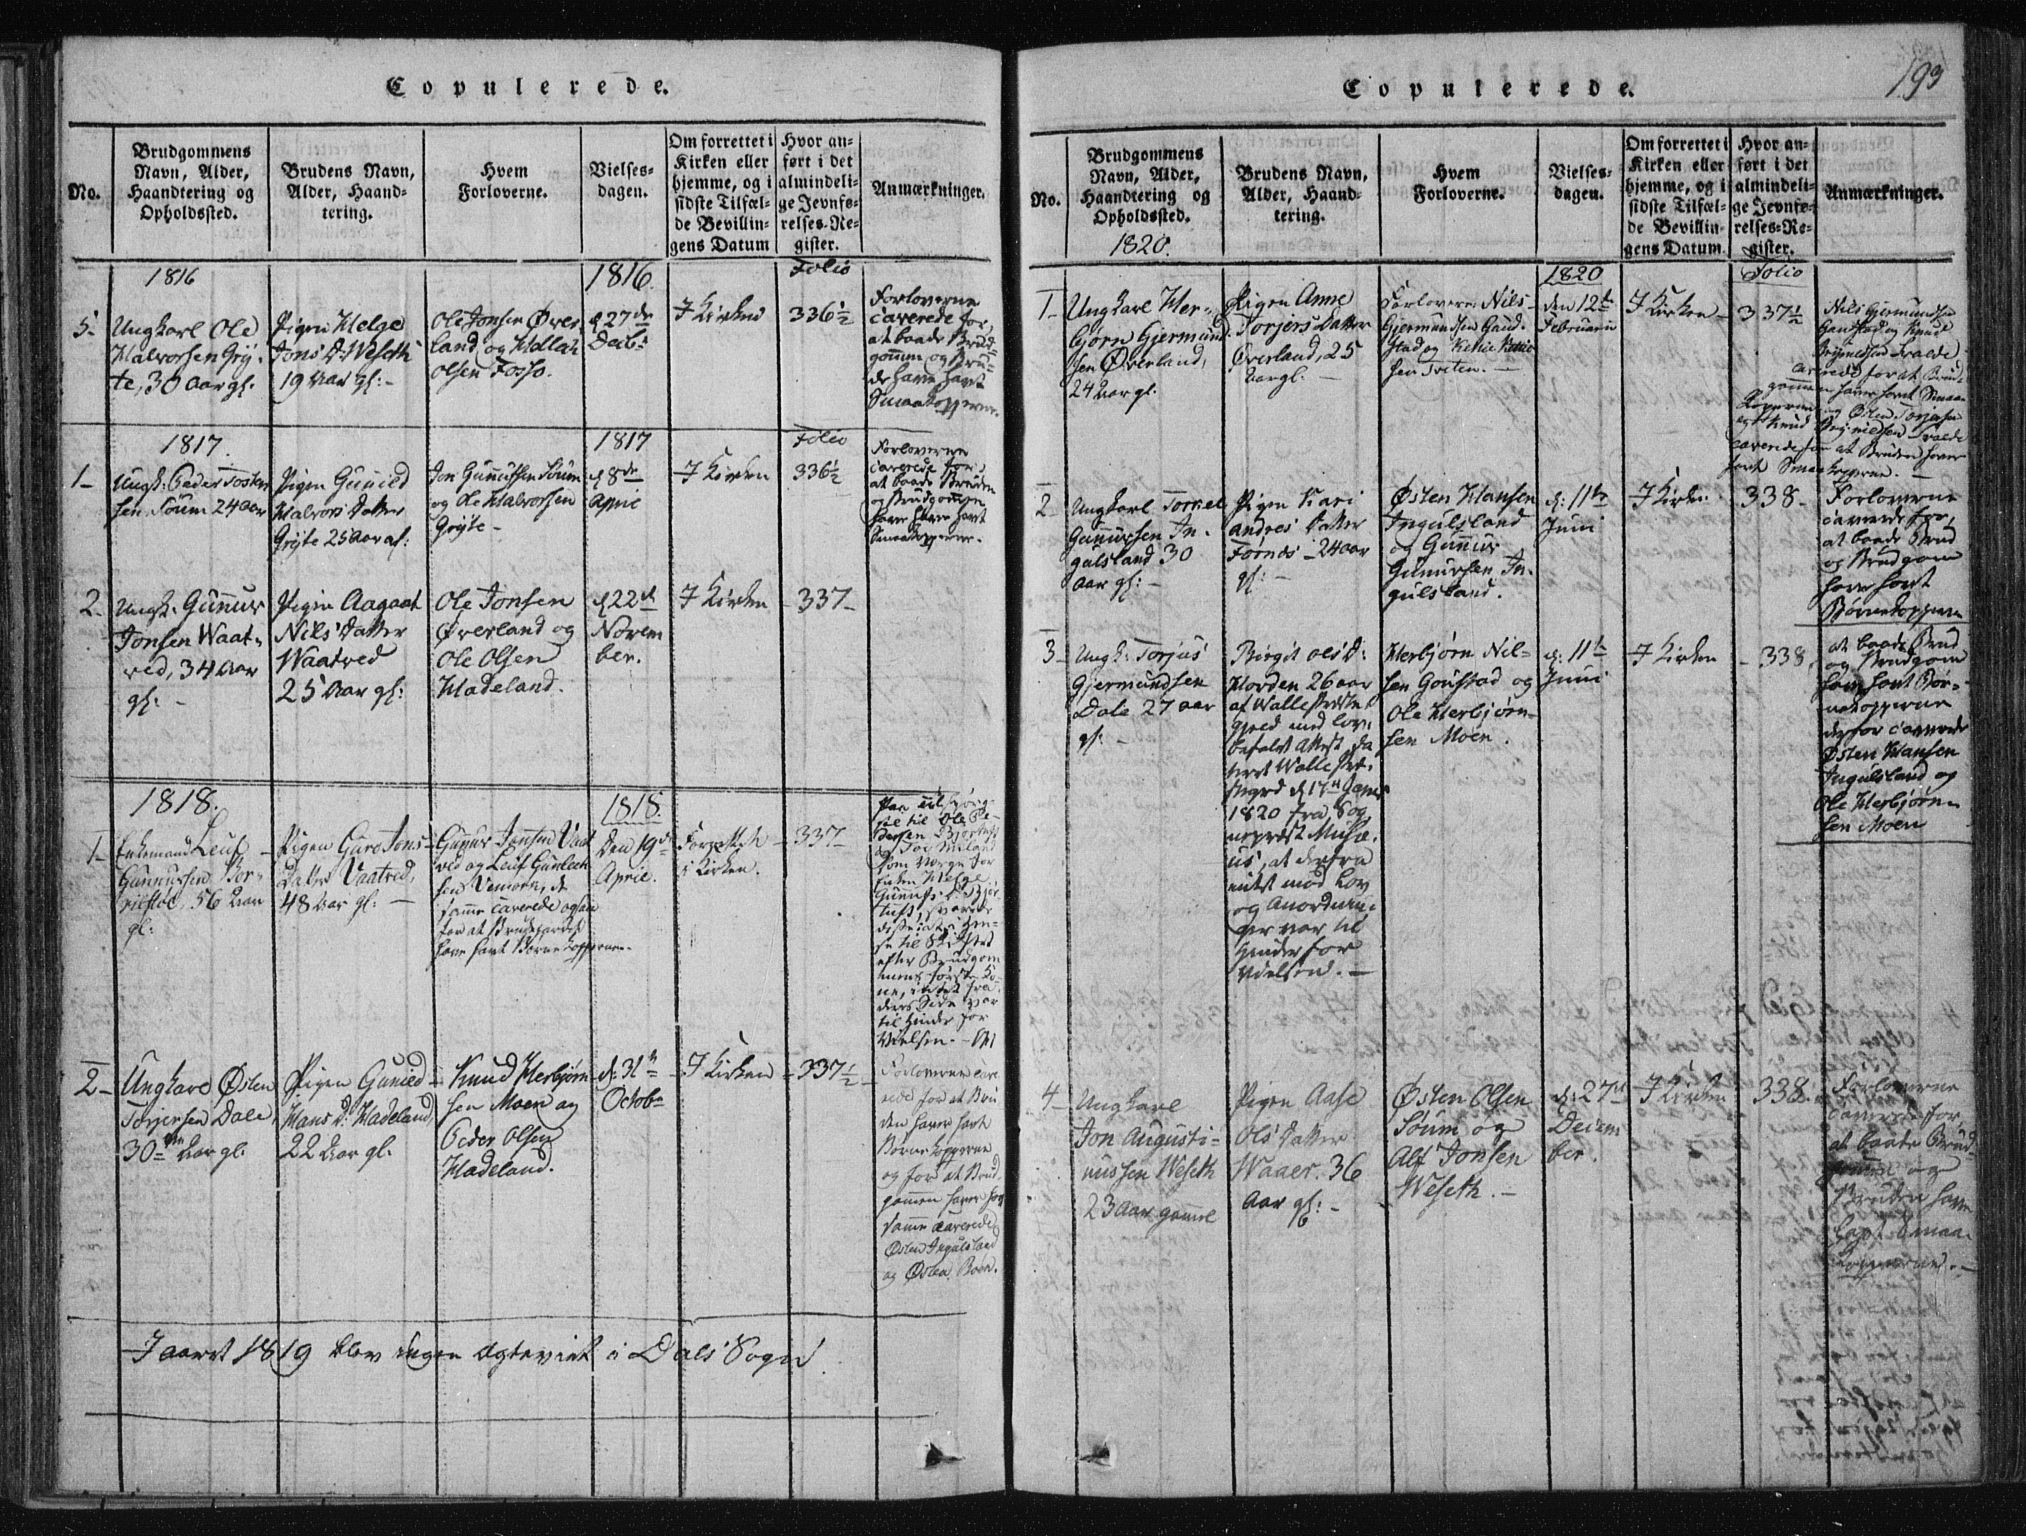 Copulerede.
No.
Brudgommens
Navn, Alder,
Haandtering og
Opholdssted.
Brudens Navn,
Alder, Haand-
tering.
Hvem
Forloverne.
Vielses-
dagen.
Om forrettet i
Kirken eller
hjemme, og i
sidste Tilfæl-
de Bevillin-
gens Datum
Hvor an-
ført i det
almindeli-
ge Jevnfø-
relses-Re-
gister.
Anmærkninger.
1816
1816.
Folio
5-
Ungkarl Ole
Halvorsen Gry-
te, 30 Aar gl.
Pigen Helge
Jons D: Weseth
19 Aar gl: -
Ole Jonsen Över
land og
Olsen Fosso.
d 27de
Decbr
I Kirken
336½
Forloverne
caverede for,
at baade Brud-
gommen og Bru-
den have havt
Smaakopperne.
1817.
1817
Folio
1-
Ungk: Peder Tosten
sen Söum 24 aar
Pigen Gunild
Halvors Datter
Gryte 25 Aar gl:
Jon Gunnufsen Söum
og Ole Halvorsen
Gryte -
d 8de
April
I Kirken
336½
Forloverne
caverede for,
at baade Bruden
og Brudgommen
have havt
Smaakopperne.
2-
Ungk: Gunnuv
Jonsen Waat-
ved, 34 Aar
gl. -
Pigen Aagaat
Nils Datter
Waatved
25 Aar gl:
Ole Jonsen
Överland og
Ole Olsen
Hadeland.
d 22d
Novem
ber.
I Kirken
337-
1818.
1818.
1-
Enkemand Leuf
Gunnufsen
56 Aar
gl:
Pigen Guro Jons-
Datter Vaatved,
48 Aar gl: -
Gunuv Jonsen Vaat
ved og Leuf Gunleik
sen Vemork, de
samme caverede ogsaa
for at Brudefolket
have havt Börnekopperne.
Den 19de
April.
Forrettet
i Kirken.
337
til Ole Pe-
dersen
Enken Helge
efter Brudgom
mens förste Ko-
ne, intet fra
deres Side var
til Hinder for
Vielsen. -
2-
Ungkarl Östen
Torjersen Dale,
30 Aar gl.
Pigen Gunild
Hans D: Hadeland,
22 Aar gl.
Knud Herbjörn
sen Moen og
Peder Olsen
Hadeland.
d: 31te
Octobr
I Kirken
337½
Forloverne cave
rede for at Bru
den haver havt
Börnekopperne
og for at Brud
gommen haver havt
samme caverede
Östen Ingulsland
og Östen Böen.
I aaret 1819 blev ingen Ægteviet i Dals Sogn.
193
Copulerede.
No.
Brudgommens
Navn, Alder,
Haandtering og
Opholdssted.
1820.
Brudens Navn,
Alder, Haand-
tering.
Hvem
Forloverne.
Vielses-
dagen.
Om forrettet i
Kirken eller
hjemme, og i
sidste Tilfæl-
de Bevillin-
gens Datum.
Hvor an-
ført i det
almindeli-
ge Jevnfø-
relses-Re-
gister.
Anmærkninger.
1820
Folio
1-
Ungkarl Her-
björn Gjermund
sen Överland,
24 Aar gl.
Pigen Anne
Torjers Datter
Överland, 25
Aar gl. -
Forlovere: Nils
Gjermundsen Gaud-
stad og
sen Tveten. -
Den 12te
Februarii
I Kirken
337½
Nils Gjermundsen
Gaustad og Knud
caverede for at Brud-
gommen haver havt Smaa-
kopperne og Östen Torjersen
og Knud
caverede for at Bruden haver
havt Smaakopperne. -
2-
Ungkarl Torkel
Gunnufsen In-
gulsland 30
Aar gl: -
Pigen Kari
Andres Datter
Törnes - 24 aar
gl: -
Östen Hansen
Ingulsland
og Gunnuv
Gunnufsen In-
gulsland.
d: 11te
Juni
I Kirken
338-
Forloverne
caverede for,
at baade Brud
og Brudgom
have havt
Börnekopperne
3-
Ungk: Torjus
Gjermundsen
Dale 27 aar
gl: -
Birgit Ols D:
Horden 26 aar
af Walle Præste
gjeld med lov-
befalet Attest da
teret Walle Præ-
stegrd d 17de Janr
1820 fra Sog
nepræst Musæ-
us, at derfra
intet mod Lov
og Anordnin-
ger var til
Hinder for
Vielsen. -
Herbjörn Nil-
sen Goustad og
Ole Herbjörn-
sen Moen.
d: 11te
Juni
I Kirken
338.
at baade Brud
og Brudgom
have havt Bör-
nekopperne
derfor caverede
Östen Hansen
Ingulsland og
Ole Herbjörn-
sen Moen
4-
Ungkarl
Jon Augusti-
nussen Weseth
23 Aar gamel
Pigen Aase
Ols Datter
Waaer. 36
Aar gl: -
Östen Olsen
Söum og
Alf Jonsen
Weseth. -
d: 27de
Decem
ber.
I Kirken
338.
Forloverne
caverede for,
at baade Brud-
gommen og
Bruden have
havt Smaa-
kopperne. -